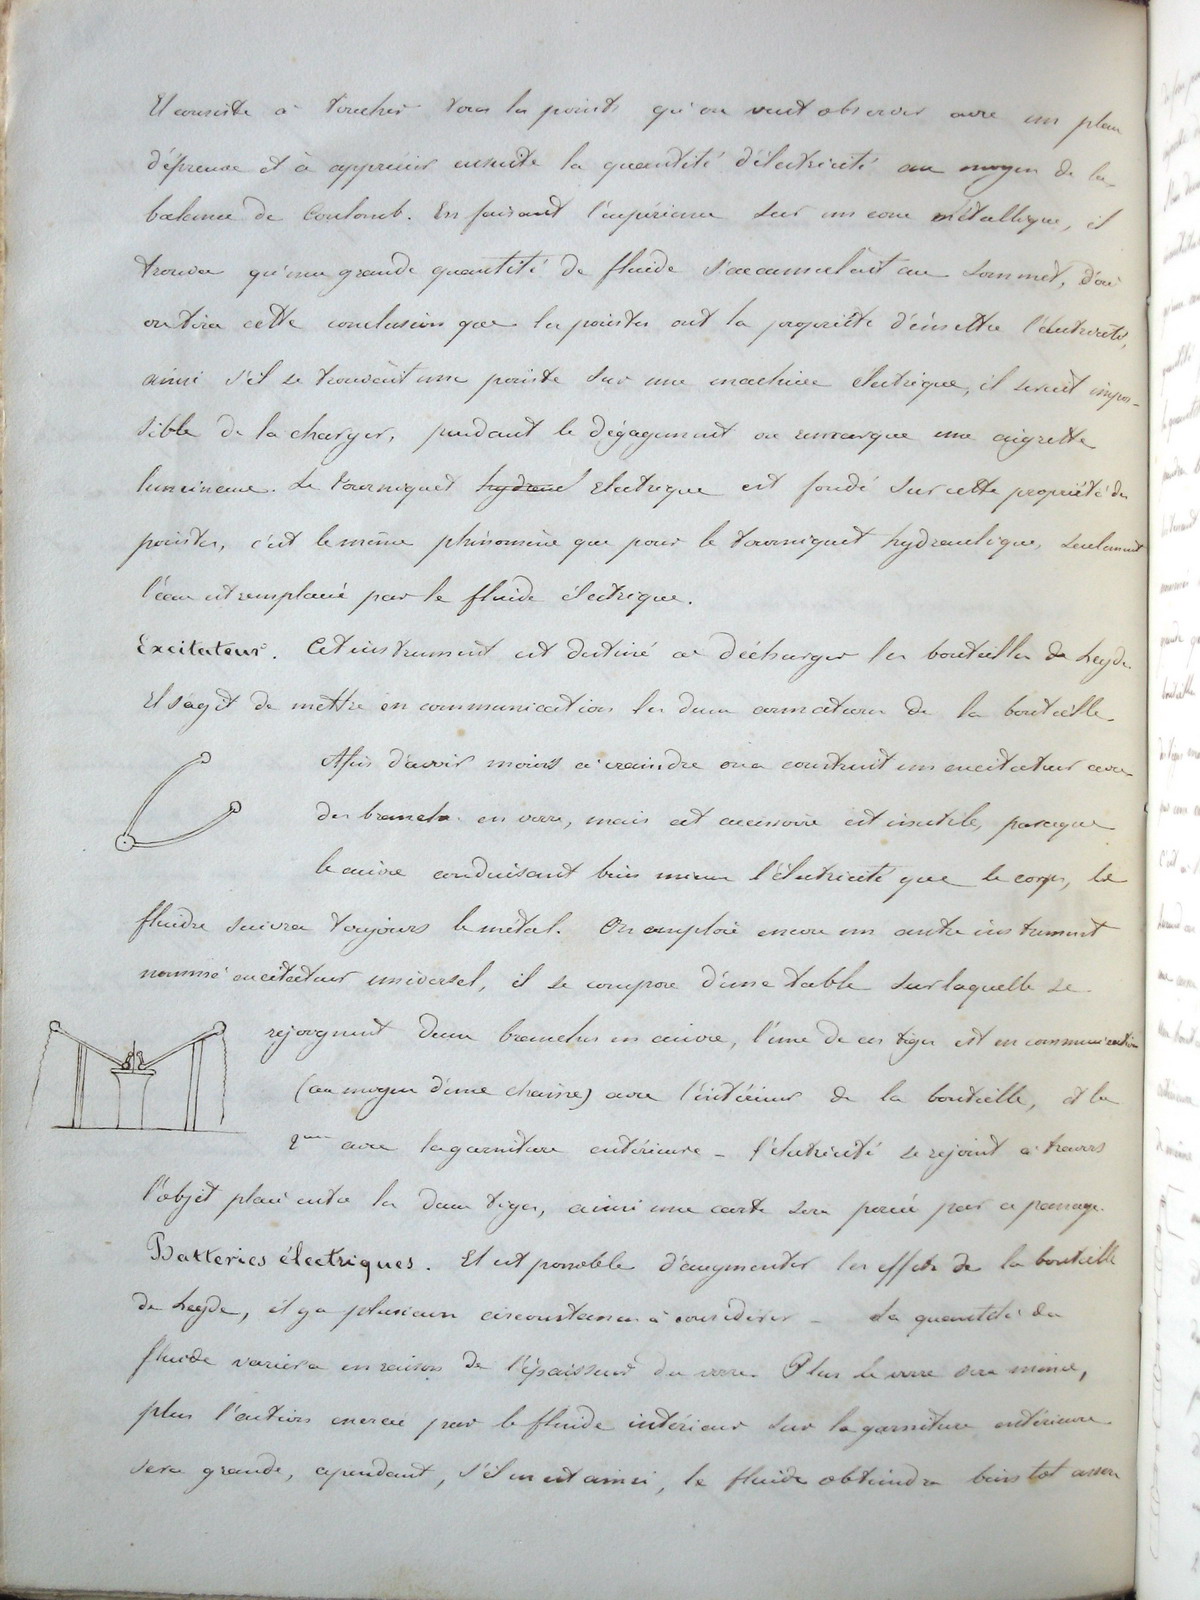 Il consiste à toucher tous les points qu'on veut observer avec un plan
d'épreuve et à apprécier ensuite la quantité d'électricité au moyen de la
balance de Coulomb. En faisant l'expérience sur un cone métallique, il
trouva qu'une grande quantité de fluide s'accumulait au sommet, d'où
on tira cette conclusion que les pointes ont la propriété d'émettre l'électricité,
ainsi s'il se trouvait une pointe sur une machine électrique, il serait impos-
sible de la charger, pendant le dégagement on remarque une aigrette
lumineuse. Le tourniquet électrique est fondé sur cette propriété des
pointes, c'est le même phénomène que pour le tourniquet hydraulique, seulement
l'eau est remplacée par le fluide électrique.
Excitateur. Cet instrument est destiné à décharger les bouteilles de Leyde.
Il s'agit de mettre en communication les deux armatures de la bouteille.
Afin d'avoir moins à craindre on a construit un excitateur avec
des branches en verre, mais cet accessoire est inutile, parceque
le cuivre conduisant bien mieux l'électricité que le corps, le
fluide suivra toujours le métal. On emploie encore un autre instrument
nommé excitateur universel, il se compose d'une table sur laquelle se
rejoignent deux branches en cuivre, l'une de ces tiges est en communication
(au moyen d'une chaîne) avec l'intérieur de la bouteille, et la
2me avec la garniture extérieure - l'électricité se rejoint à travers
l'objet placé entre les deux tiges, ainsi une carte sera percée par ce passage.
Batteries électriques. Il est possible d'augmenter les effets de la bouteille
de Leyde, il y a plusieurs circonstances à considérer - La quantité du
fluide variera en raison de l'épaisseur du verre. Plus le verre sera mince,
plus l'action exercée par le fluide intérieur sur la garniture extérieure
sera grande, cependant, s'il en est ainsi, le fluide obtiendra bien tot assez